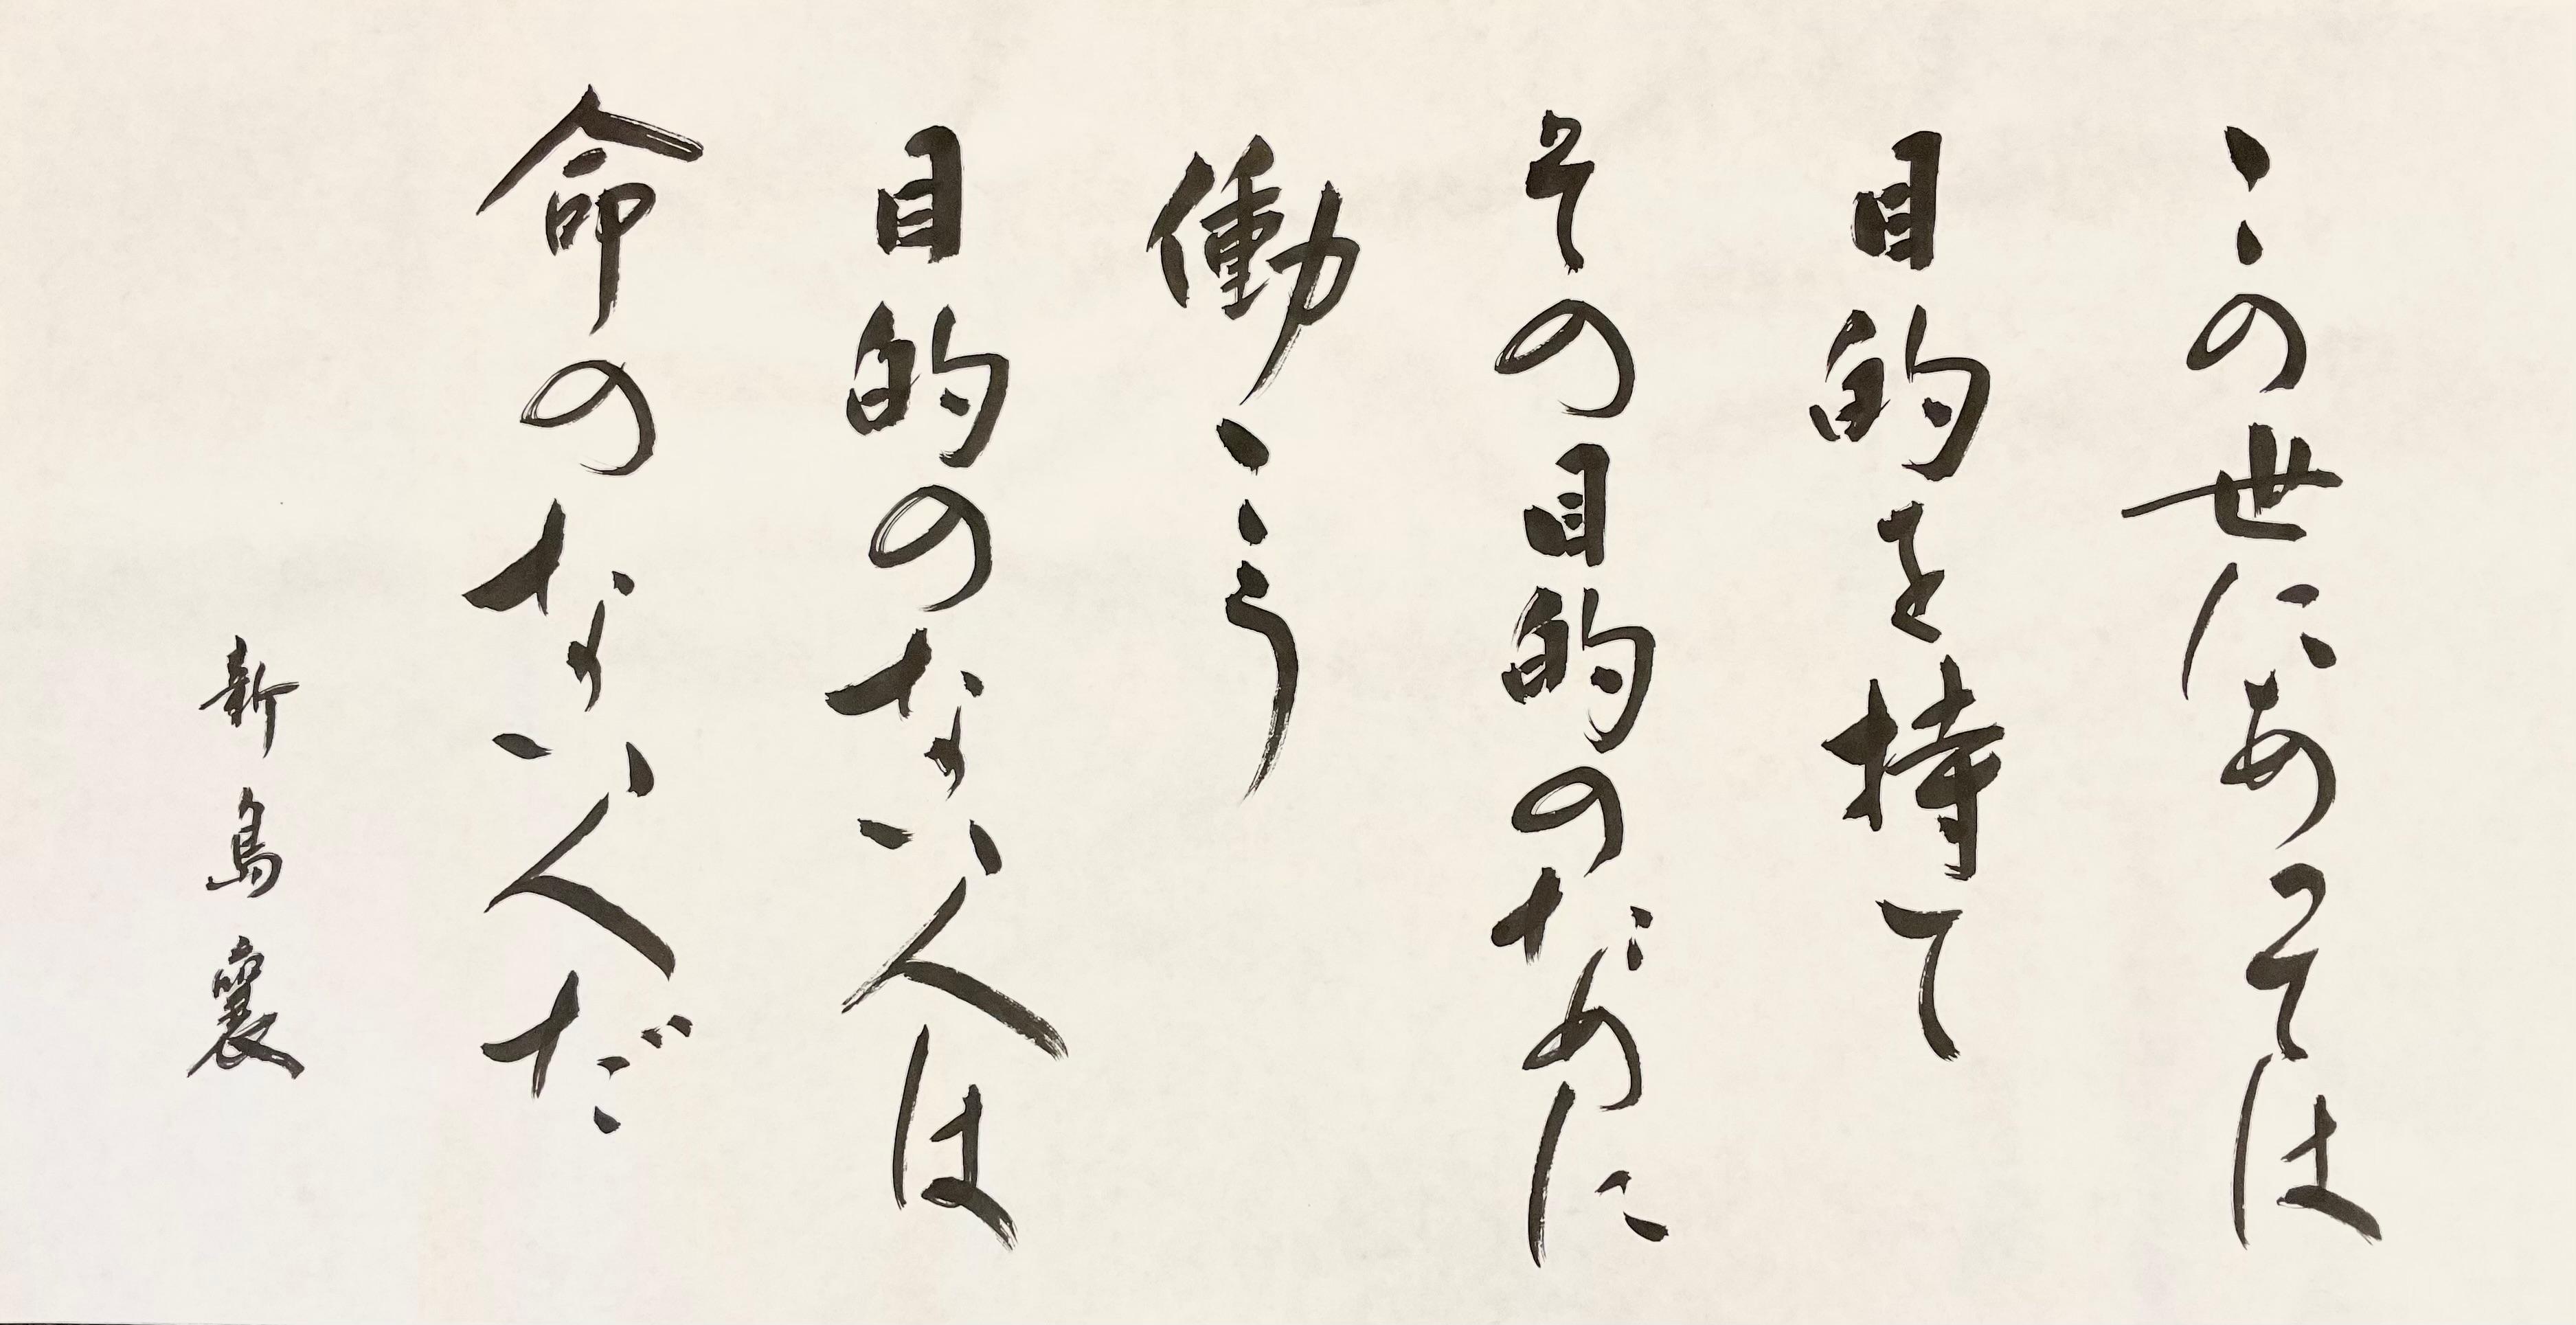 この世にあっては
目的を持て
その目的のために
働こう
目的のない人は
命のない人だ
新島襄